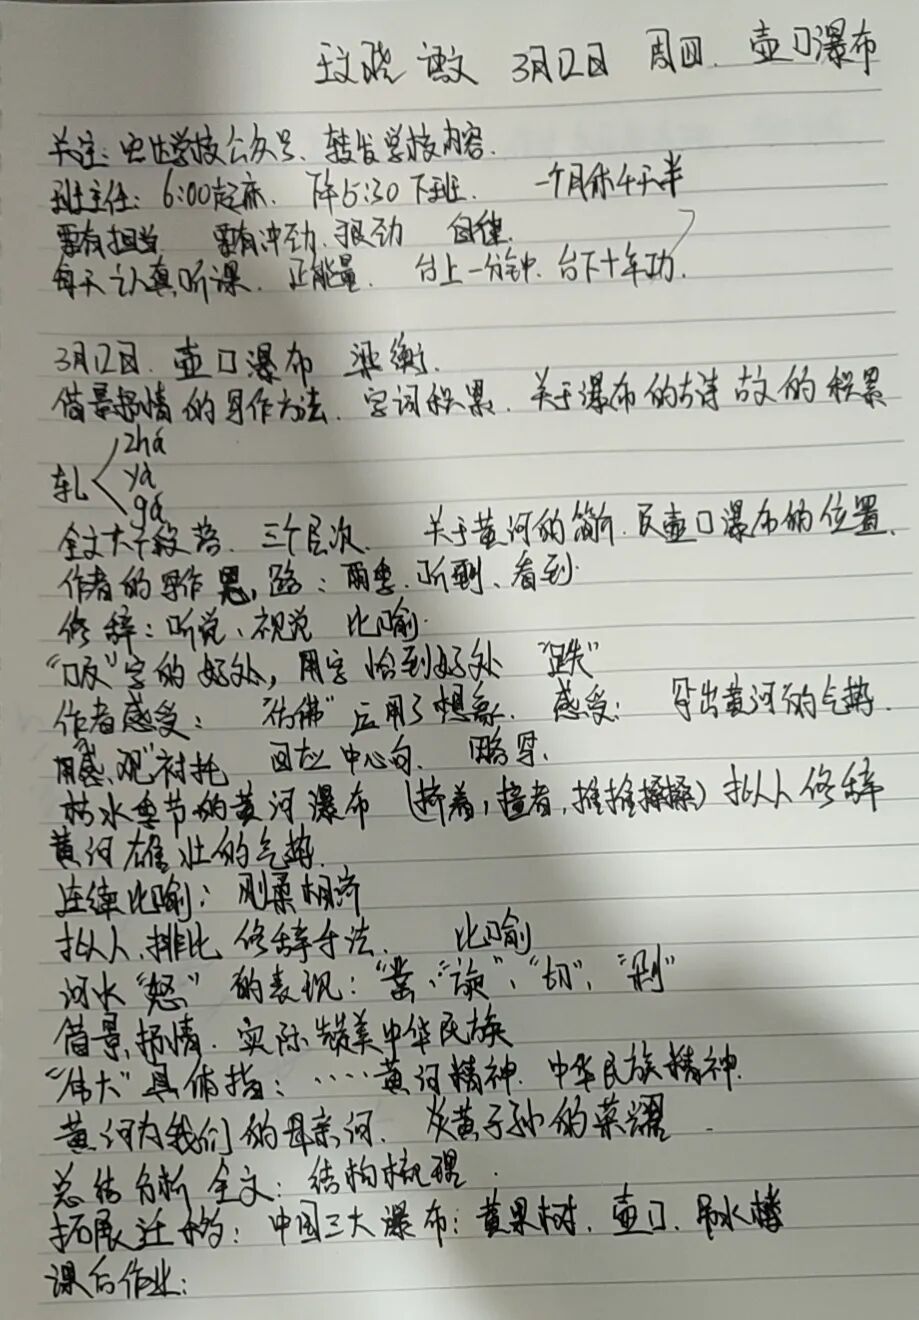 语文 3月12日 周四. 壶口瀑布
关注: 学校公众号、转发学校内容.
班主任: 6:00起床. 下午5:30下班. 一个月休4天半
要有担当 要有冲劲、狠劲 自律.
每天认真听课. 正能量. 台上一分钟. 台下十年功.
3月12日. 壶口瀑布 梁衡.
借景抒情的写作方法. 字词积累. 关于瀑布的古诗 故的积累
轧 zhá
yà
gá
全文六个段落. 三个层次. 关于黄河的简介. 及壶口瀑布的位置.
作者的写作思路: 雨季. 听到、看到.
修辞: 听觉、视觉 比喻.
字的好处, 用字恰到好处 “跌”
作者感受: “仿佛”应用了想象. 感受: 写出黄河的气势.
衬托 回应中心句. 略写.
枯水季节的黄河瀑布 (挤着, 撞着, 推推搡搡) 拟人修辞
黄河雄壮的气势.
连续比喻: 刚柔相济
拟人、排比 修辞手法. 比喻
河水“怒”的表现: “窝”、“旋”、“切”、“剁”
借景抒情. 实际赞美中华民族
“伟大”具体指: ····黄河精神. 中华民族精神.
黄河为我们的母亲河. 炎黄子孙的荣耀.
总结分析全文: 结构梳理.
拓展迁移: 中国三大瀑布: 黄果树. 壶口. 吊水楼
课后作业: